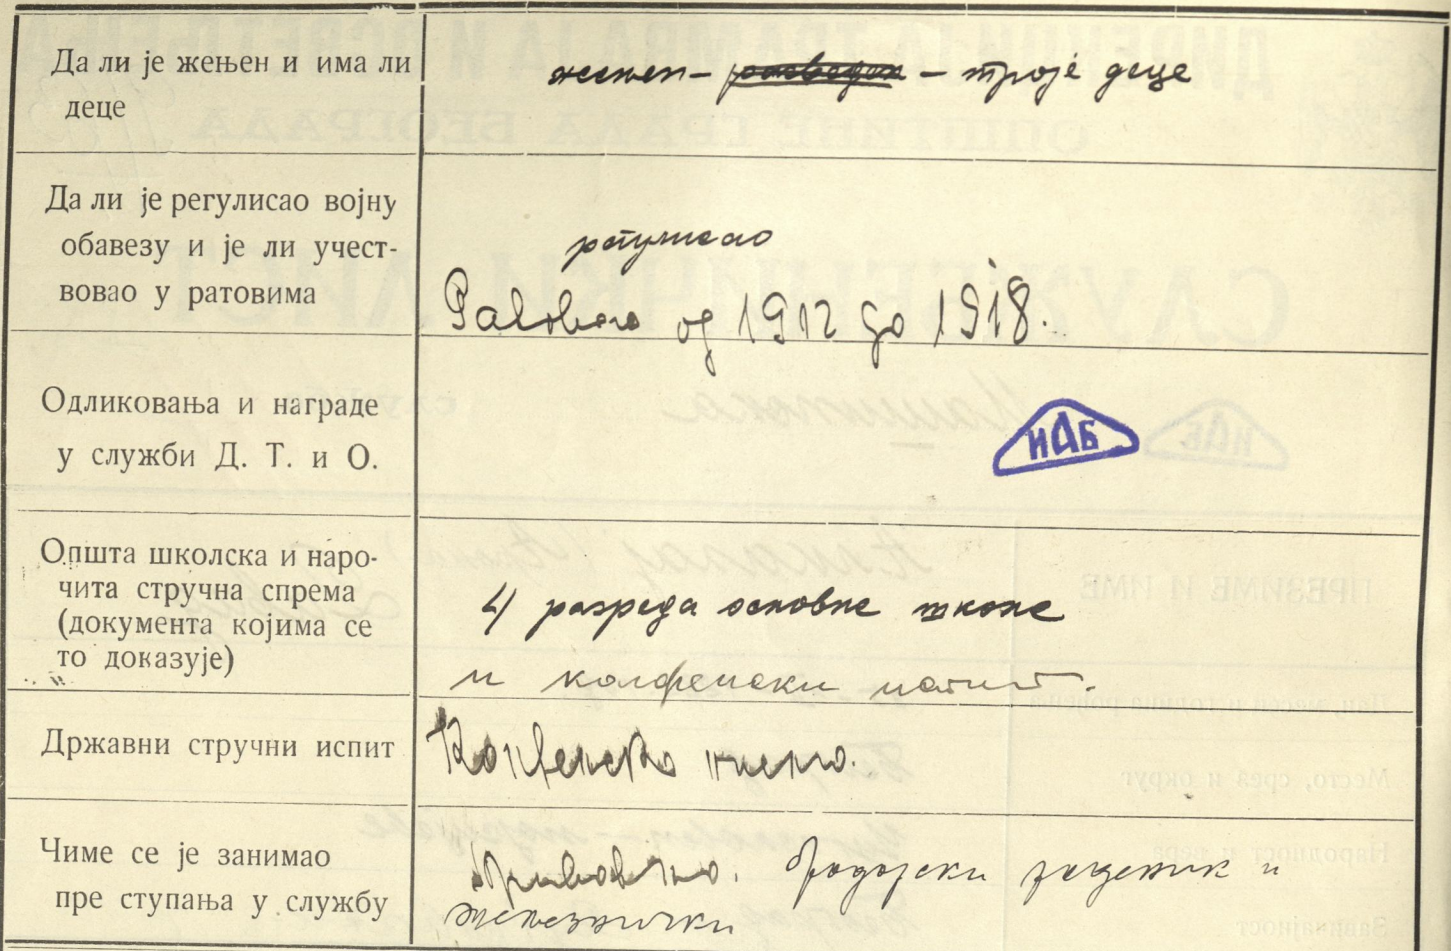 Да ли је жењен и има ли
деце
жењен – разведен – троје деце
Да ли је регулисао војну
обавезу и је ли учест-
вовао у ратовима
регулисао
Ратовао од 1912 до 1918.
Одликовања и награде
у служби Д. Т. и О.
ИАБ
Општа школска и наро-
чита стручна спрема
(документа којима се
то доказује)
4 разреда основне школе
и калфенски испит.
Државни стручни испит
писмо.
Чиме се је занимао
пре ступања у службу
бродарски раденик и
железнички